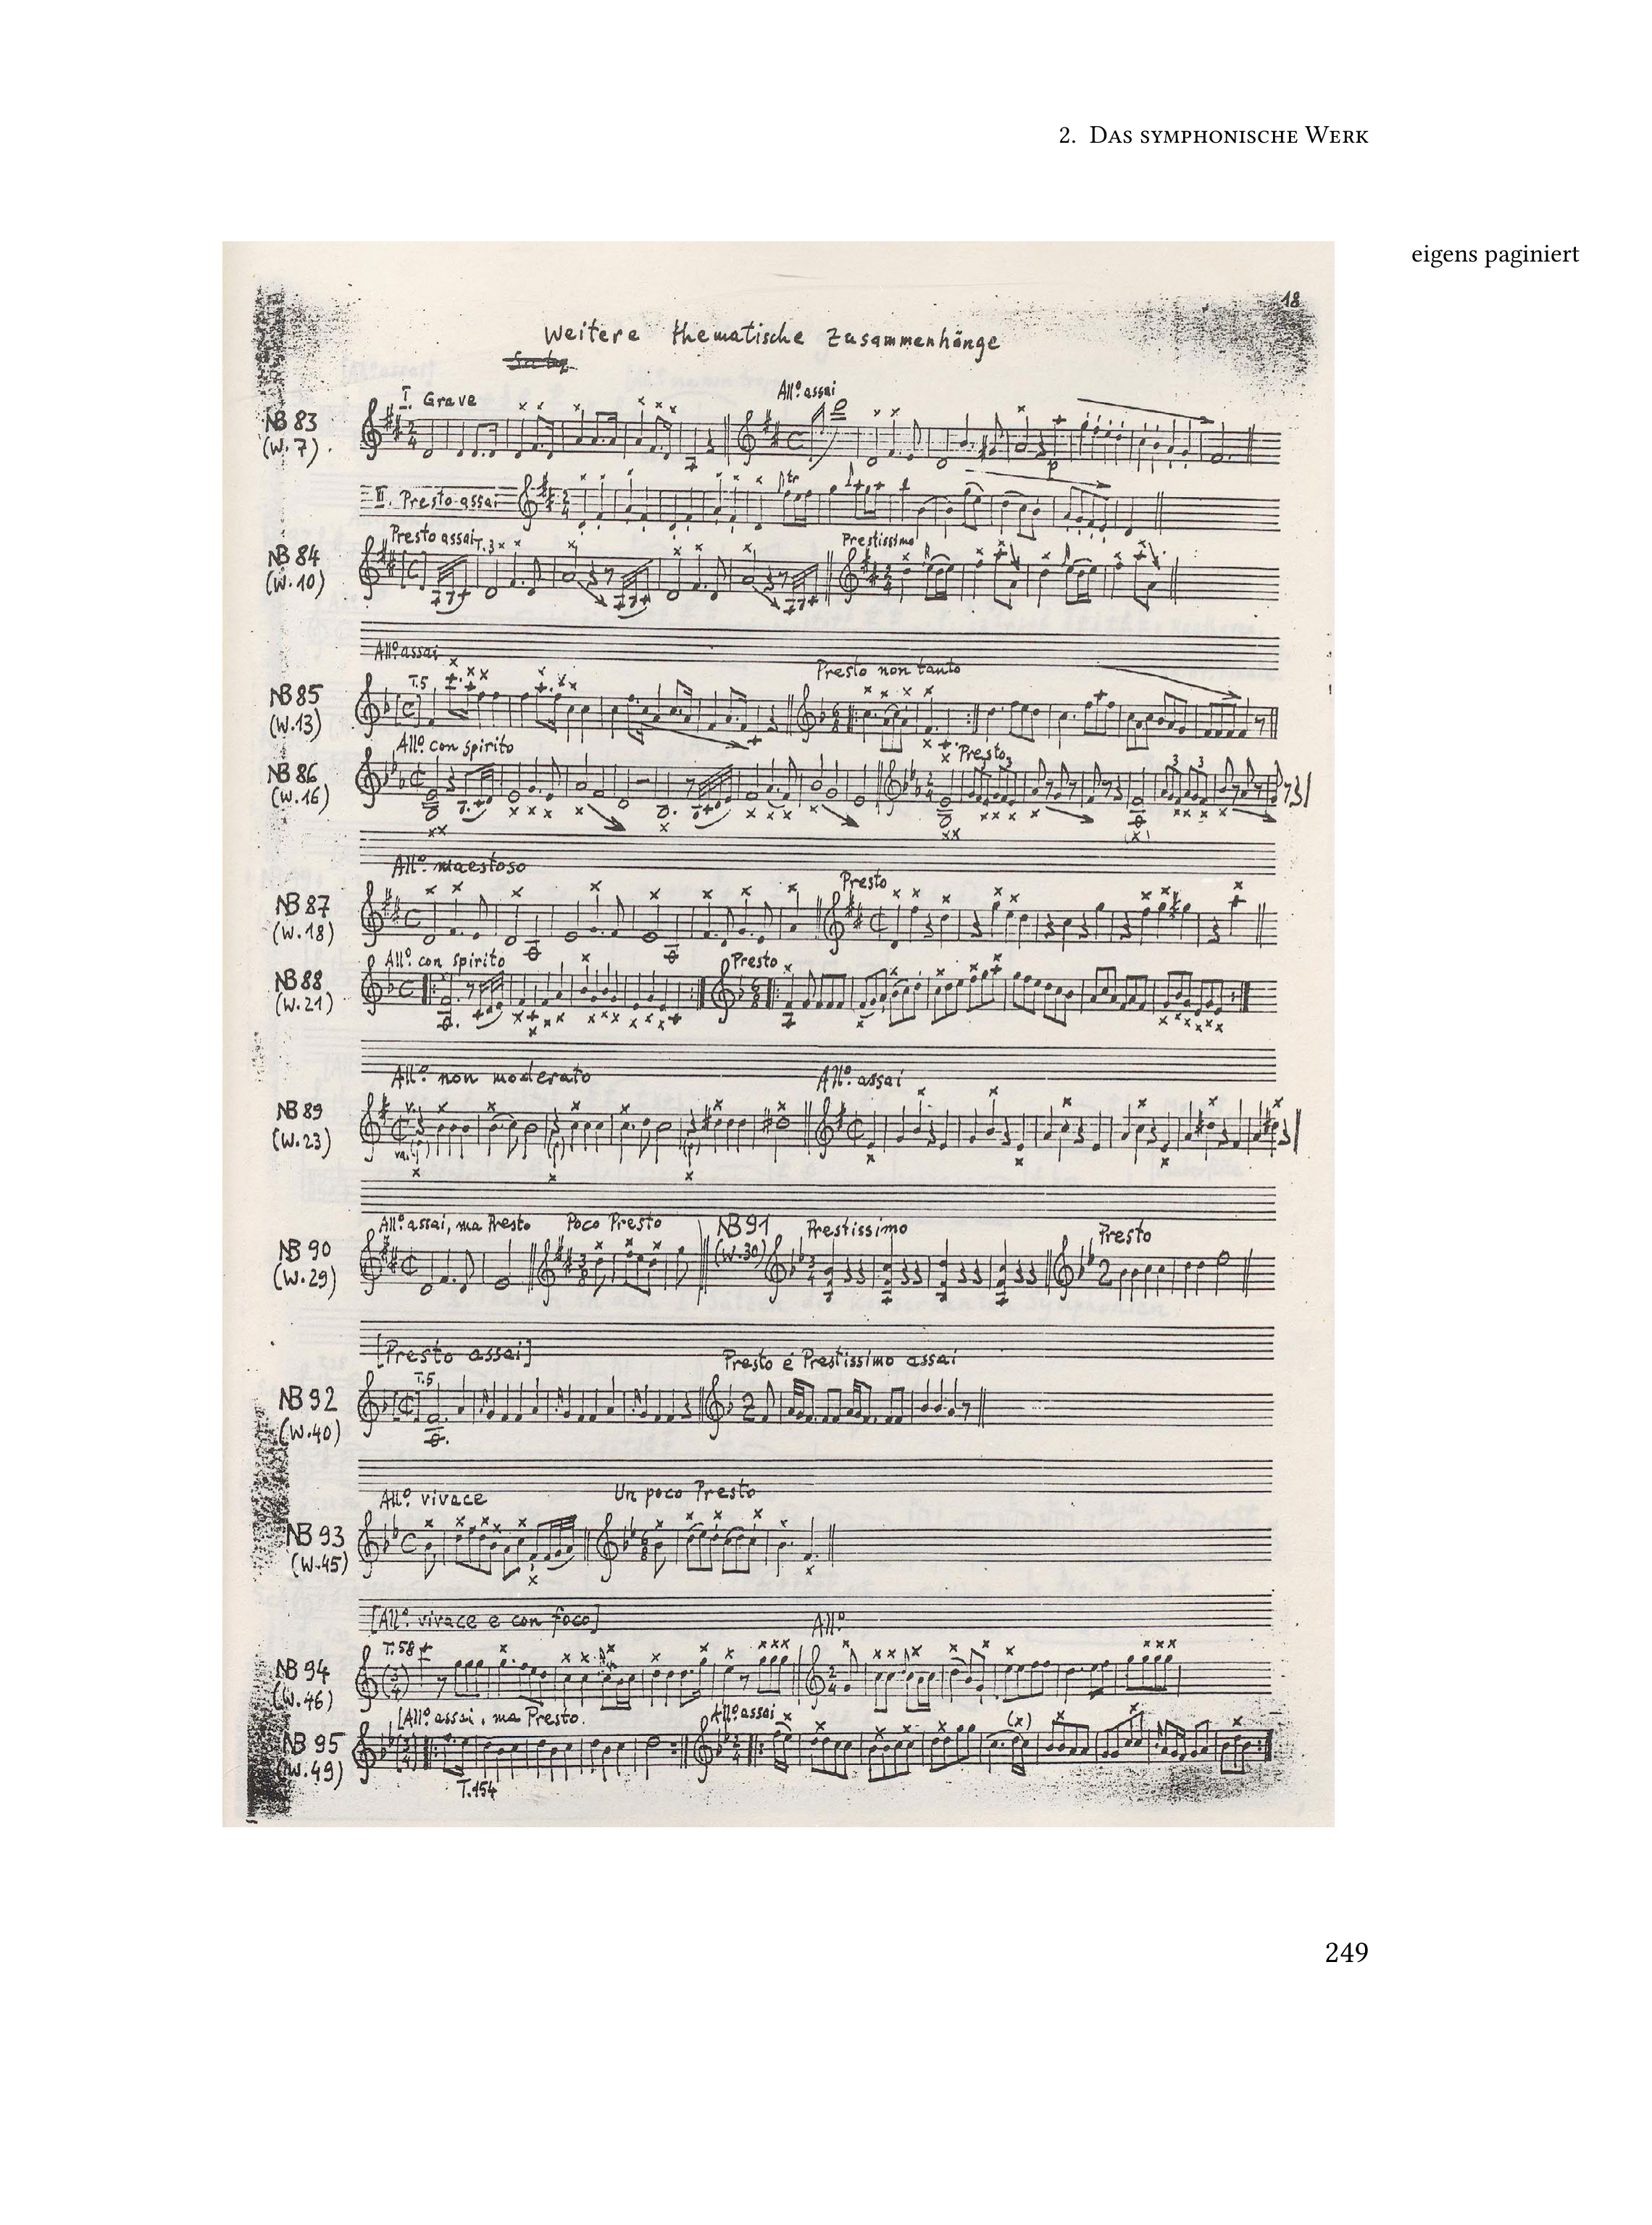 2. Das symphonische Werk
eigens paginiert
18
Weitere thematische Zusammenhänge
I. Grave All.º assai
NB 83
(W. 7)
p
II. Presto assai tr
Presto assai T.3 Prestissimo
NB 84
(W. 10)
All.º assai Presto non tanto
NB 85 T.5
(W. 13)
All.º con spirito Presto
NB 86 3 3 3
(W. 16)
All.º maestoso Presto
NB 87
(W. 18)
All.º con spirito Presto
NB 88
(W. 21)
All.º non moderato All.º assai
NB 89
(W. 23)
All.º assai, ma Presto Poco Presto NB 91 Prestissimo Presto
NB 90 (W. 30)
(W. 29)
[Presto assai] Presto e Prestissimo assai
NB 92 T.5
(W. 40)
All.º vivace Un poco Presto
NB 93
(W. 45)
[All.º vivace e con foco] All.º
T.58
NB 94
(W. 46)
[All.º assai, ma Presto. All.º assai
NB 95
(W. 49)
T.154
249